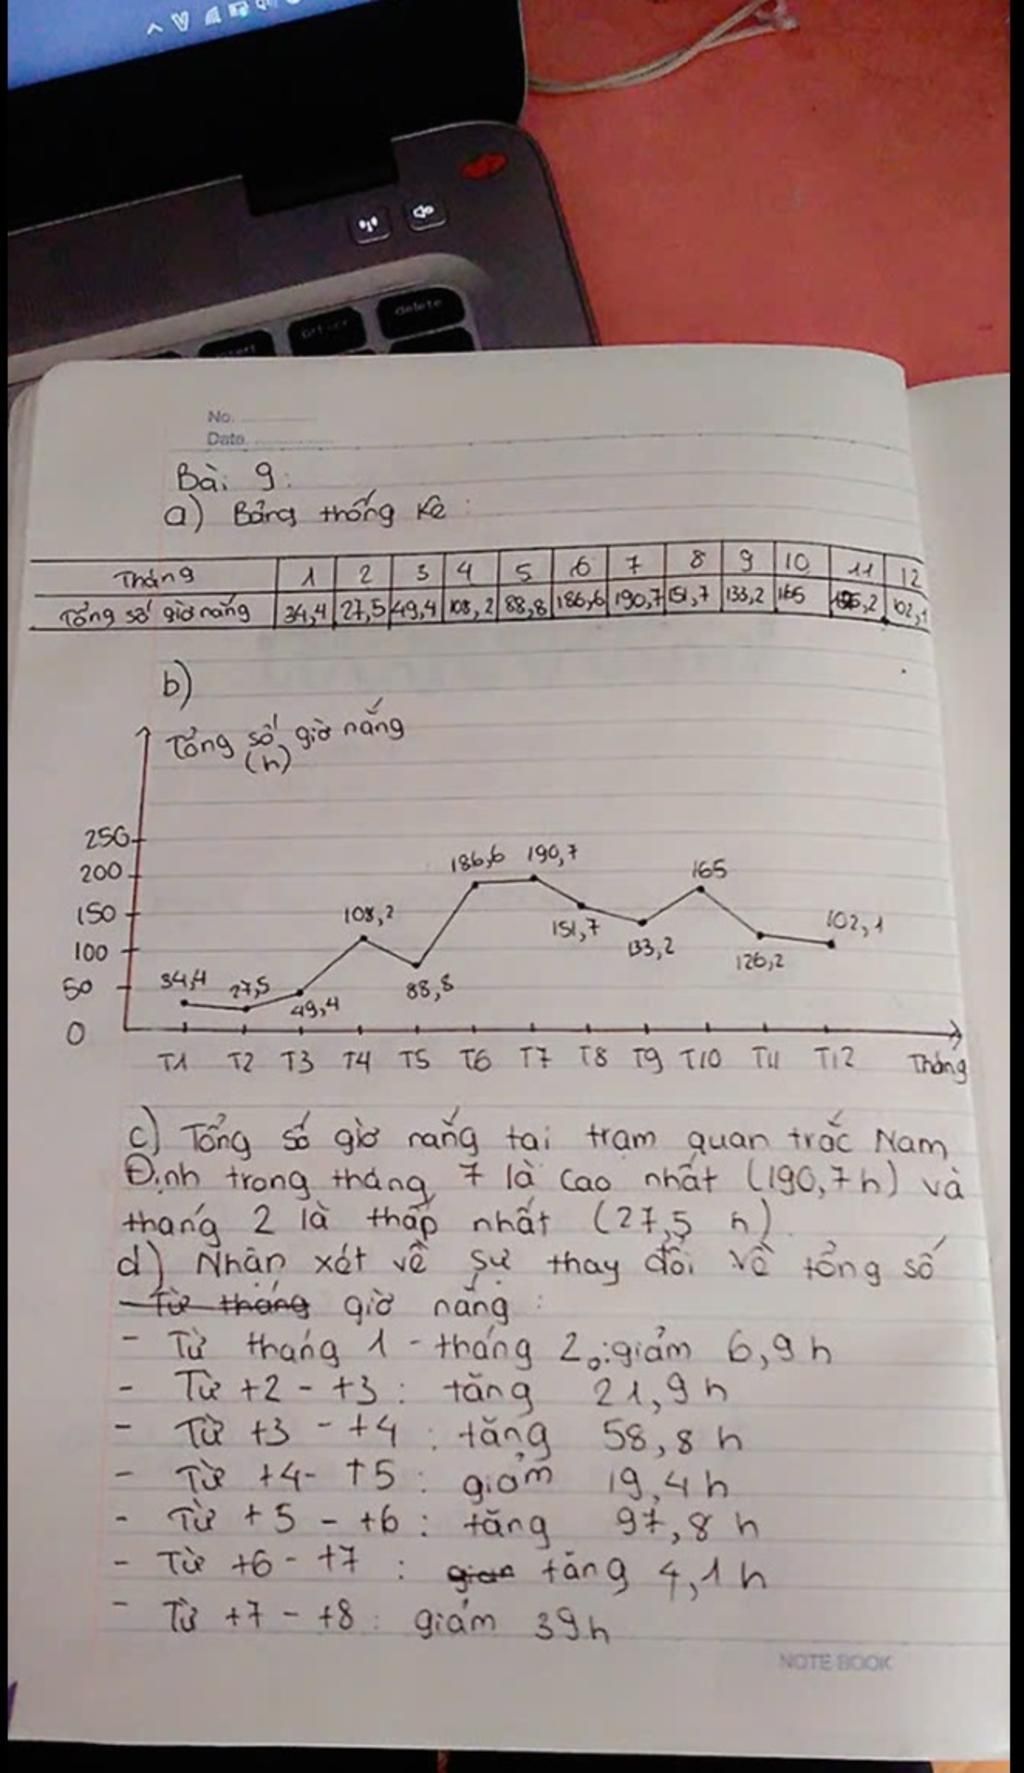 delete
No.
Date.
Bài 9:
a) Bảng thống kê:
Tháng 1 2 3 4 5 6 7 8 9 10 11 12
Tổng số giờ nắng 34,4 27,5 49,4 108,2 88,8 186,6 190,7 151,7 133,2 165 126,2 102,1
b)
Tổng số giờ nắng
(h)
250
200
150
100
50
0
34,4 27,5 49,4 108,2 88,8 186,6 190,7 151,7 133,2 165 126,2 102,1
T1 T2 T3 T4 T5 T6 T7 T8 T9 T10 T11 T12 Tháng
c) Tổng số giờ nắng tại trạm quan trắc Nam
Định trong tháng 7 là cao nhất (190,7h) và
tháng 2 là thấp nhất (27,5 h)
d) Nhận xét về sự thay đổi về tổng số
Từ tháng giờ nắng:
- Từ tháng 1 - tháng 2: giảm 6,9h
- Từ t2 - t3: tăng 21,9h
- Từ t3 - t4: tăng 58,8h
- Từ t4 - t5: giảm 19,4h
- Từ t5 - t6: tăng 97,8h
- Từ t6 - t7: tăng 4,1h
- Từ t7 - t8: giảm 39h
NOTE BOOK